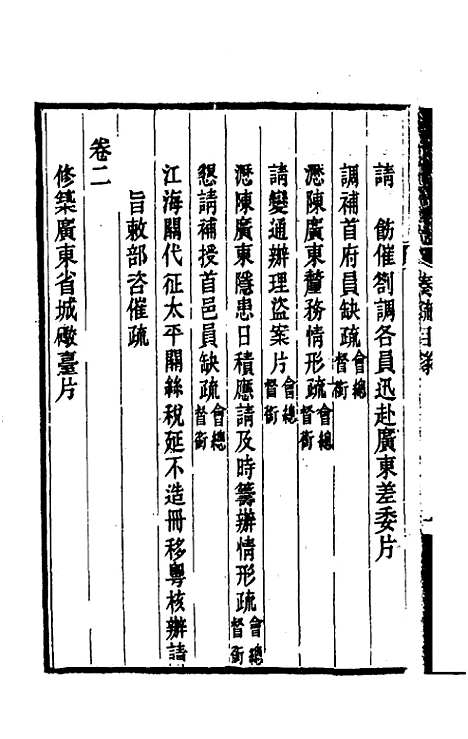 奏疏目錄
請　飭催劄調各員迅赴廣東差委片
調補首府員缺疏會總督銜
瀝陳廣東釐務情形疏會總督銜
請變通辦理盜案片會總督銜
瀝陳廣東隱患日積應請及時籌辦情形疏會總督銜
懇請補授首邑員缺疏會總督銜
江海關代征太平關絲稅延不造冊移粵核辦請
旨敕部咨催疏
卷二
修築廣東省城礮臺片